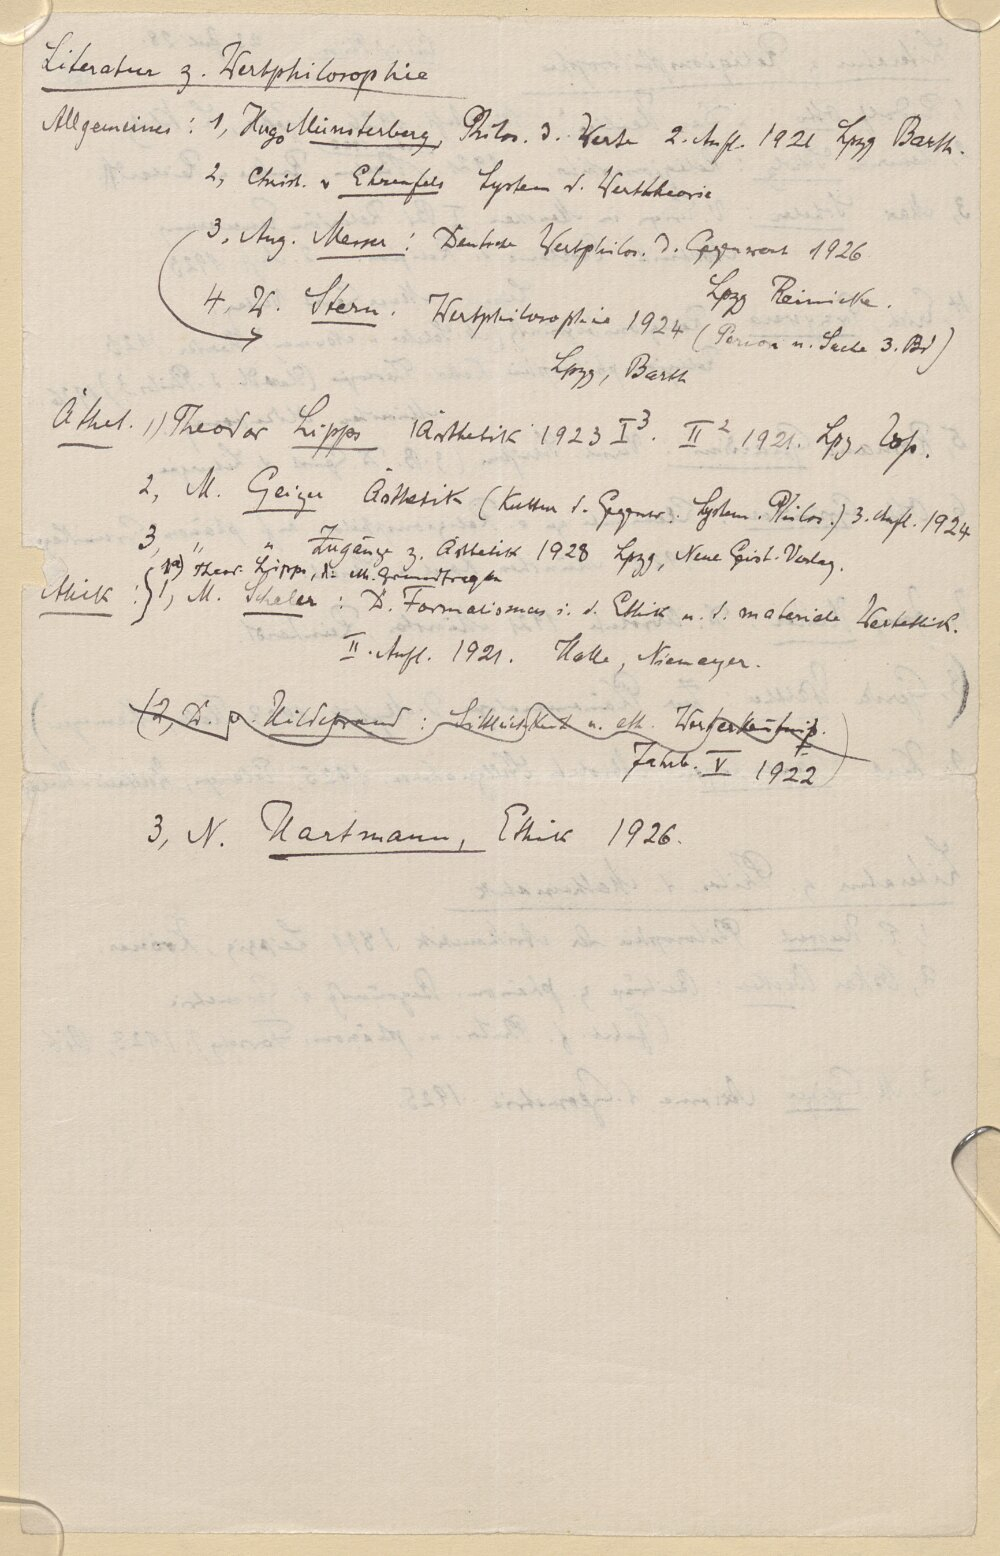 Literatur z. Wertphilosophie
Allgemeines: 1, Hugo Münsterberg, Philos. d. Werte 2. Aufl. 1921 Lpzg Barth.
2, Christ. v Ehrenfels System d. Werttheorie
3, Aug. Messer: Deutsche Wertphilos. d. Gegenwart 1926
Lpzg Reinicke.
4, W. Stern. Wertphilosophie 1924 (Person u. Sache 3. Bd)
Lpzg, Barth
Ästhet. 1) Theodor Lipps Ästhetik 1923 I³. II² 1921. Lpzg, Voß.
2, M. Geiger Ästhetik (Kultur d. Gegenw. System. Philos.) 3. Aufl. 1924
3, " " Zugänge z. Ästhetik 1928 Lpzg, Neue Geist-Verlag.
1a) Theod. Lipps, D. eth. Grundfragen
Ethik: 1, M. Scheler: D. Formalismus i. d. Ethik u. d. materiale Wertethik.
II. Aufl. 1921. Halle, Niemeyer.
(2, D. v. Hildebrand: Sittlichkeit u. eth. Werterkenntniß.
Jahrb. V 1922)
3, N. Hartmann, Ethik 1926.